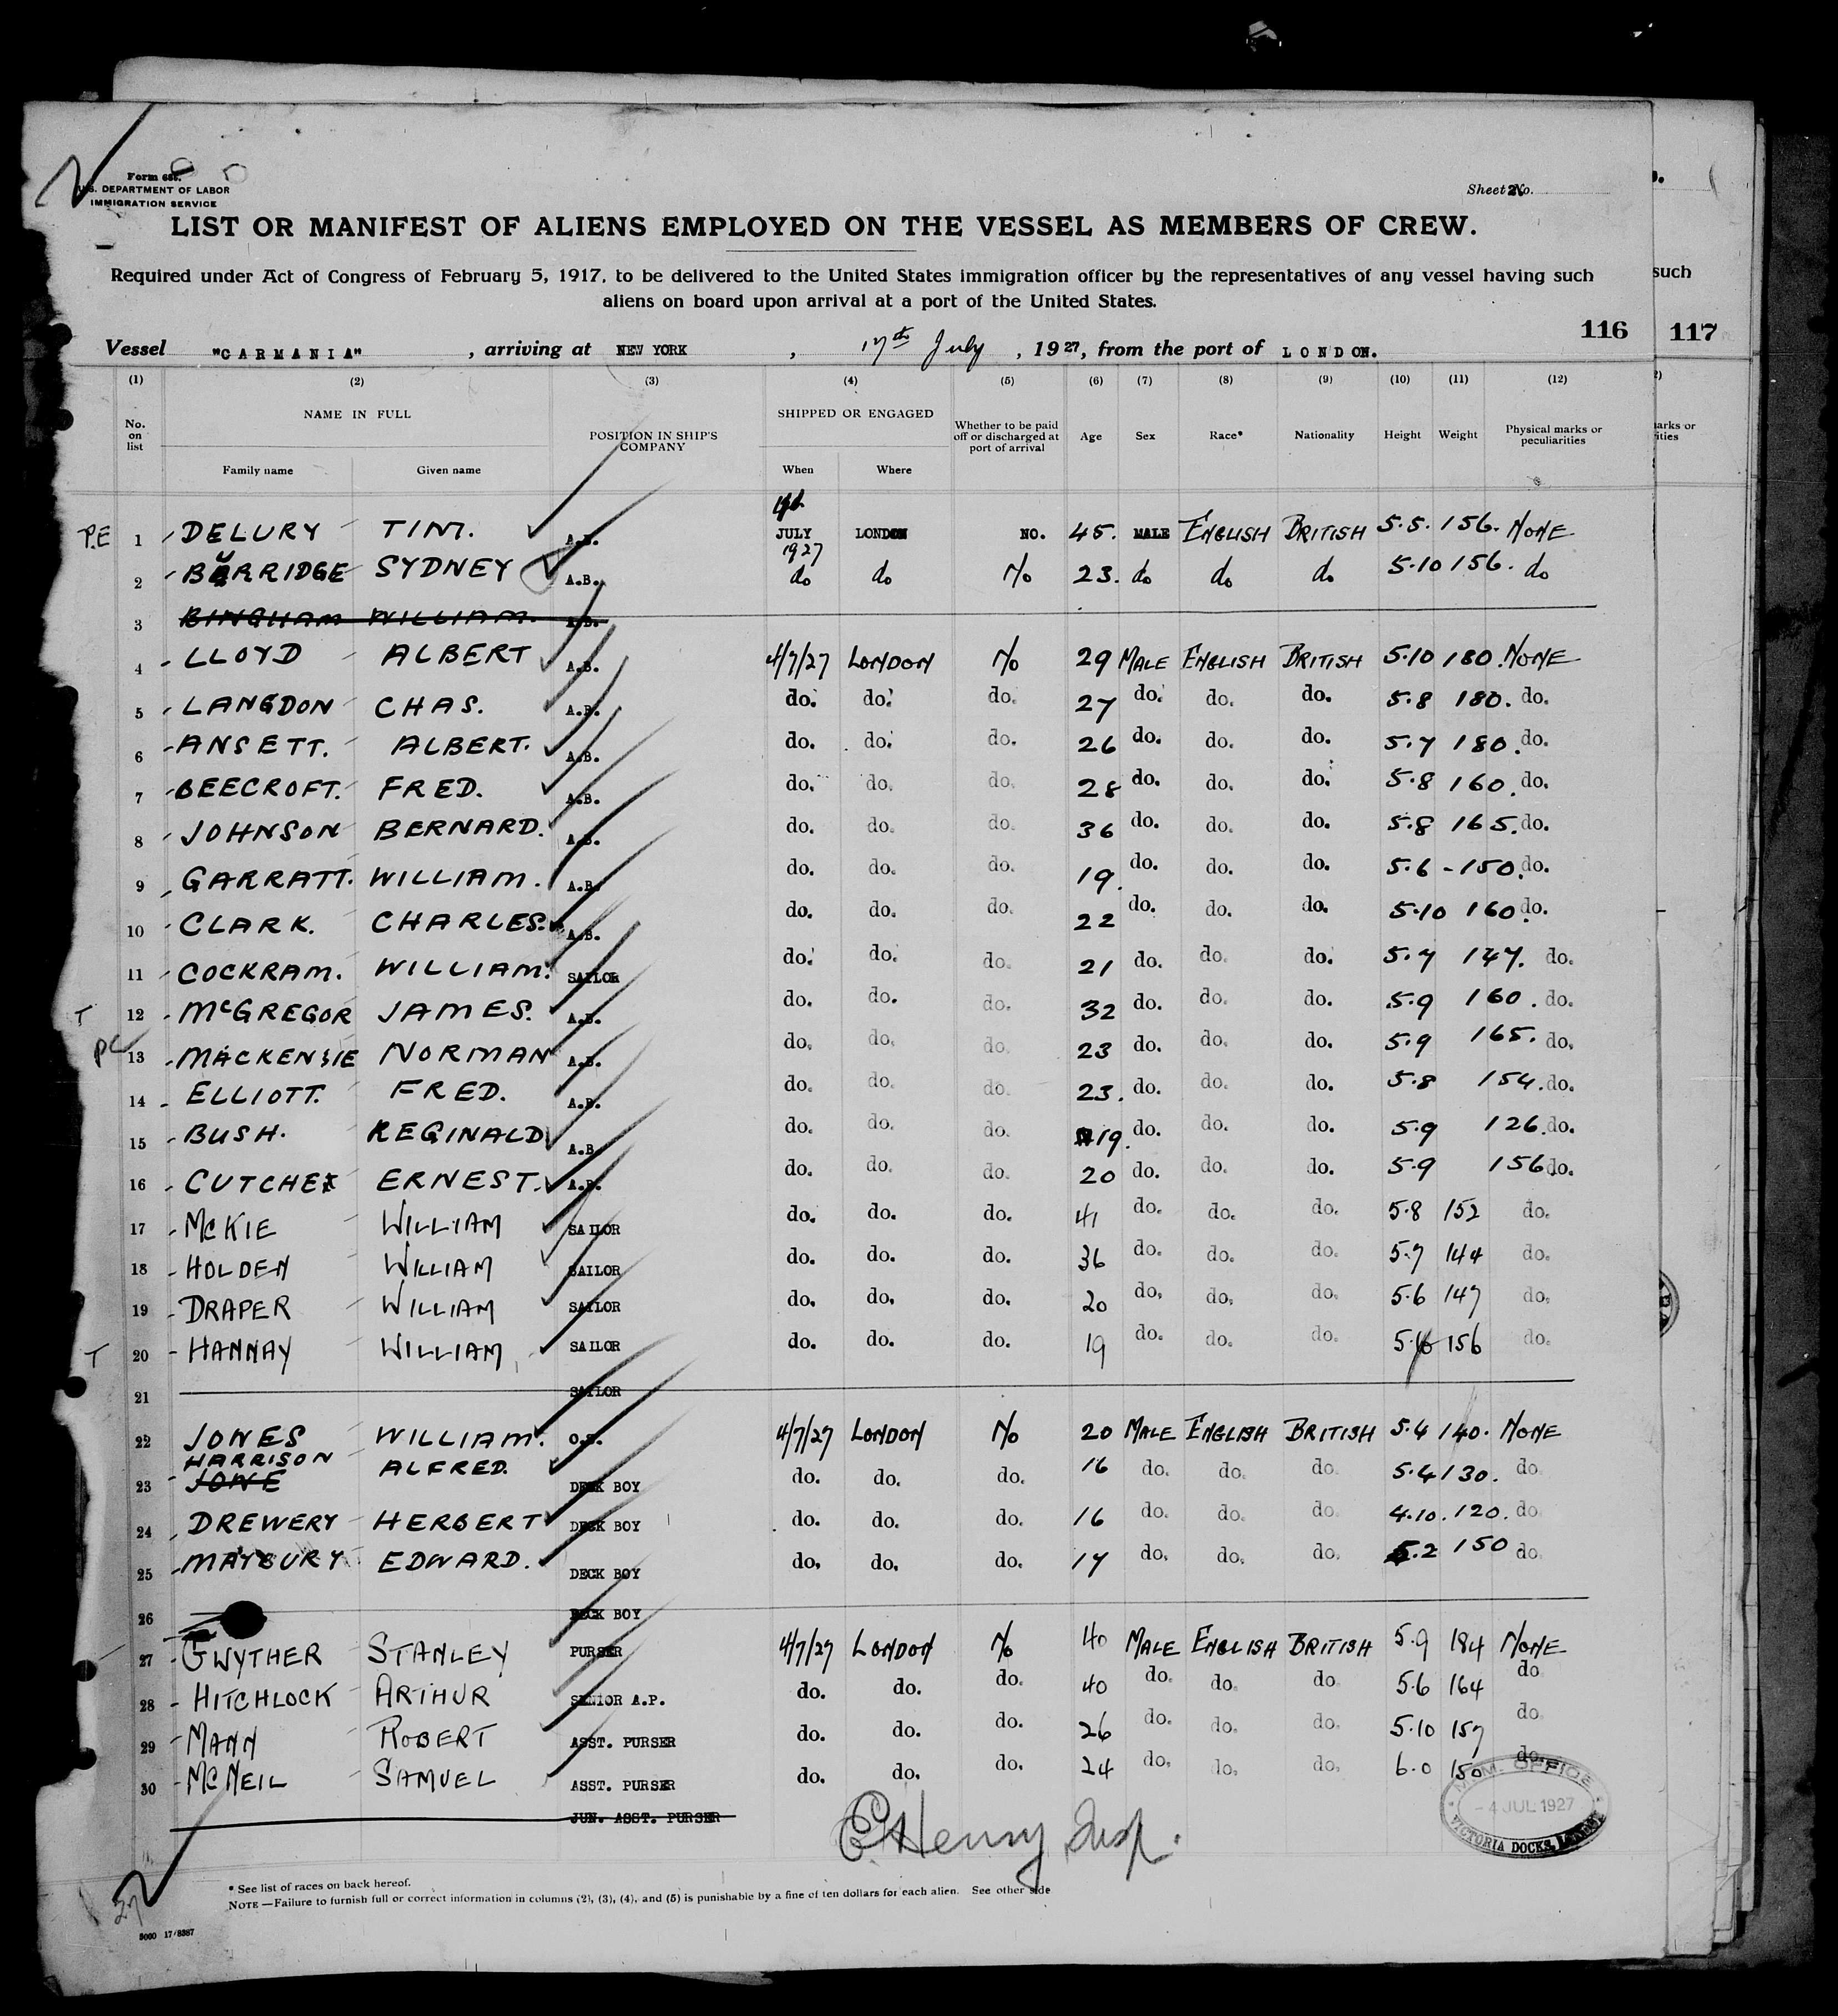 Form 686.
U.S. DEPARTMENT OF LABOR
IMMIGRATION SERVICE
Sheet No. 2
LIST OR MANIFEST OF ALIENS EMPLOYED ON THE VESSEL AS MEMBERS OF CREW.
Required under Act of Congress of February 5, 1917, to be delivered to the United States immigration officer by the representatives of any vessel having such
such
aliens on board upon arrival at a port of the United States.
116 117
Vessel "CARMANIA", arriving at NEW YORK, 17th July, 1927, from the port of LONDON.
(1) (2) (3) (4) (5) (6) (7) (8) (9) (10) (11) (12)
No. on list NAME IN FULL POSITION IN SHIP'S COMPANY SHIPPED OR ENGAGED Whether to be paid off or discharged at port of arrival Age Sex Race* Nationality Height Weight Physical marks or peculiarities
Family name Given name When Where
P.E 1 DELURY TIM. A.B. JULY 1927 LONDON NO. 45. MALE ENGLISH BRITISH 5.5. 156. NONE
2 BURRIDGE SYDNEY A.B. do do No 23. do do do 5.10 156. do
3 BINGHAM WILLIAM. A.B.
4 LLOYD ALBERT A.B. 4/7/27 LONDON No 29 MALE ENGLISH BRITISH 5.10 180. NONE
5 LANGDON CHAS. A.B. do. do. do. 27 do. do. do. 5.8 180. do.
6 ANSETT. ALBERT. A.B. do. do. do. 26 do. do. do. 5.7 180. do.
7 BEECROFT. FRED. A.B. do. do. do. 28 do. do. do. 5.8 160. do.
8 JOHNSON BERNARD. A.B. do. do. do. 36 do. do. do. 5.8 165. do.
9 GARRATT. WILLIAM. A.B. do. do. do. 19. do. do. do. 5.6 - 150. do.
10 CLARK. CHARLES. A.B. do. do. do. 22 do. do. do. 5.10 160 do.
11 COCKRAM. WILLIAM. SAILOR do. do. do. 21 do. do. do. 5.7 147. do.
T 12 McGREGOR JAMES. A.B. do. do. do. 32 do. do. do. 5.9 160. do.
PC 13 MACKENSIE NORMAN A.B. do. do. do. 23 do. do. do. 5.9 165. do.
14 ELLIOTT. FRED. A.B. do. do. do. 23. do. do. do. 5.8 154. do.
15 BUSH. REGINALD A.B. do. do. do. 19. do. do. do. 5.9 126. do.
16 ERNEST. A.B. do. do. do. 20 do. do. do. 5.9 156 do.
17 McKIE WILLIAM SAILOR do. do. do. 41 do. do. do. 5.8 152 do.
18 HOLDEN WILLIAM SAILOR do. do. do. 36 do. do. do. 5.7 144 do.
19 DRAPER WILLIAM SAILOR do. do. do. 20 do. do. do. 5.6 147 do.
T 20 HANNAY WILLIAM SAILOR do. do. do. 19 do. do. do. 156 do.
21 SAILOR
22 JONES WILLIAM. O.S. 4/7/27 LONDON No 20 MALE ENGLISH BRITISH 5.4 140. NONE
HARRISON
23 JONE ALFRED. DECK BOY do. do. do. 16 do. do. do. 5.4 130. do.
24 DREWERY HERBERT DECK BOY do. do. do. 16 do. do. do. 4.10. 120. do.
25 MAYBURY EDWARD. DECK BOY do. do. do. 17 do. do. do. 5.2 150 do.
26 DECK BOY
27 GWYTHER STANLEY PURSER 4/7/27 LONDON No 40 MALE ENGLISH BRITISH 5.9 184 NONE
28 HITCHLOCK ARTHUR SENIOR A.P. do. do. do. 40 do. do. do. 5.6 164 do.
29 MANN ROBERT ASST. PURSER do. do. do. 26 do. do. do. 5.10 157 do.
30 McNEIL SAMUEL ASST. PURSER do. do. do. 24 do. do. do. 6.0 150 do.
JUN. ASST. PURSER
E Henry Insp.
M.M. OFFICE
- 4 JUL 1927
VICTORIA DOCKS, LONDON
* See list of races on back hereof.
NOTE.—Failure to furnish full or correct information in columns (2), (3), (4), and (5) is punishable by a fine of ten dollars for each alien. See other side
27
5000 17/8387